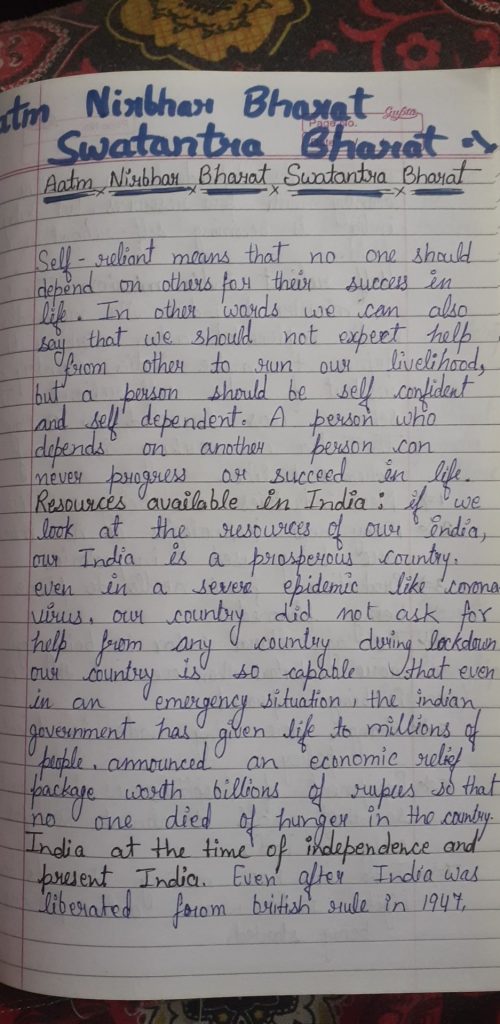 atm Nirbhar Bharat
Gupta
Page No.
Swatantra Bharat ⇒
Aatm × Nirbhar × Bharat × Swatantra × Bharat
Self-reliant means that no one should
depend on others for their success in
life. In other words we can also
say that we should not expect help
from other to run our livelihood,
but a person should be self confident
and self dependent. A person who
depends on another person can
never progress or succeed in life.
Resources available in India : if we
look at the resources of our india,
our India is a prosperous country.
even in a severe epidemic like corona
virus. our country did not ask for
help from any country during lockdown
our country is so capable that even
in an emergency situation, the indian
government has given life to millions of
people. announced an economic relief
package worth billions of rupies so that
no one died of hunger in the country.
India at the time of independence and
present India. Even after India was
liberated from british rule in 1947,